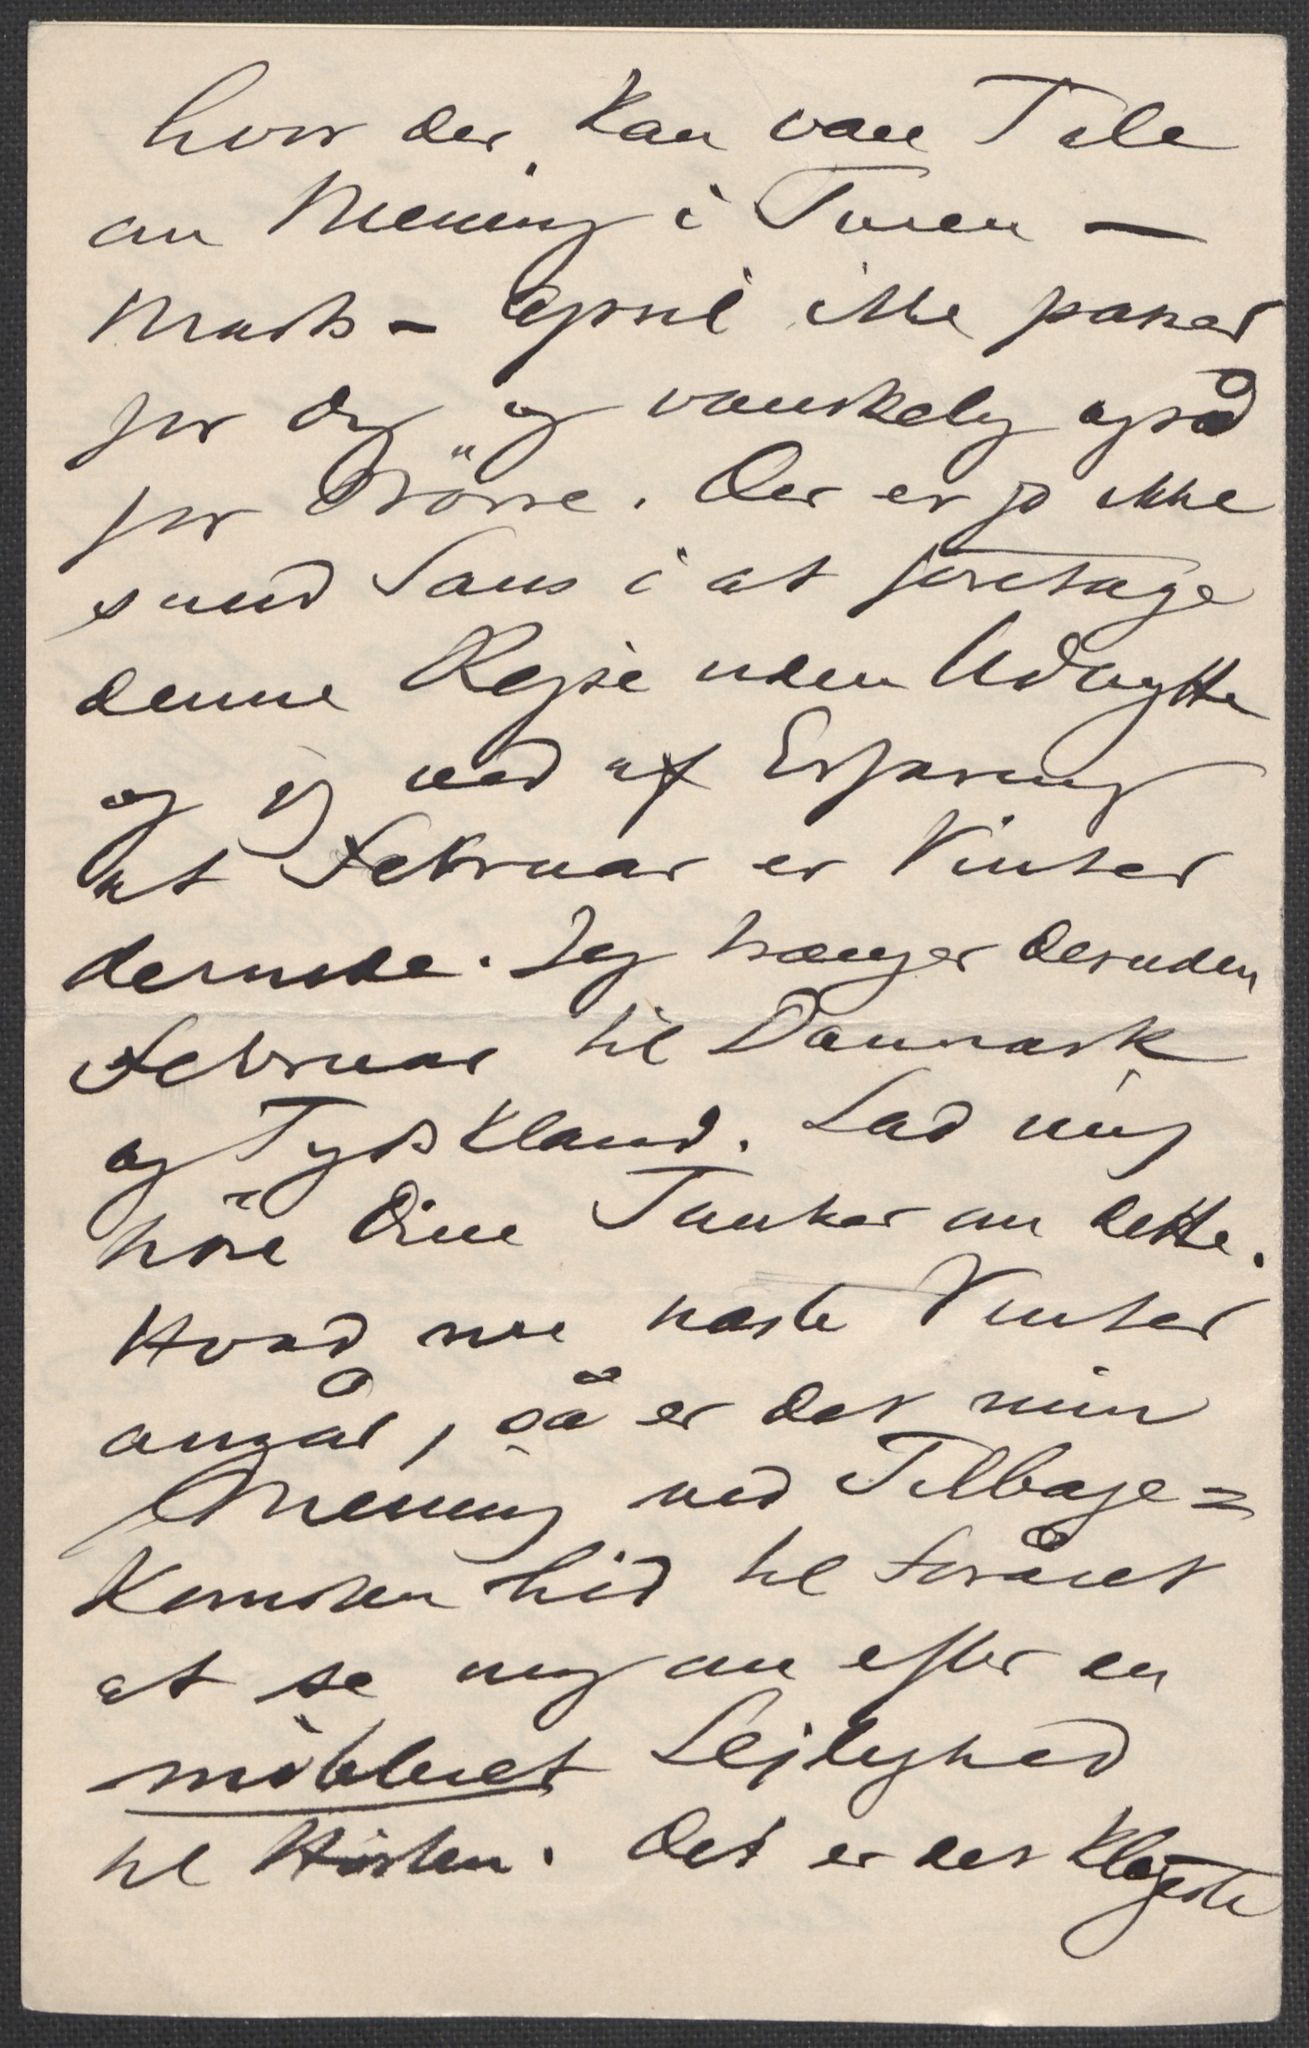 hvor der kan være Tale
om Mening i Turen —
Marts - April ikke passer
for dig og vanskelig også
for Brörre. Der er jo ikke
sund Sans i at foretage
denne Rejse uden Udbytte
og jeg ved af Erfaring
at Februar er Vinter
dernede. Jeg trænger desuden
Februar til Danmark
og Tyskland. Lad mig
höre Dine Tanker om dette.
Hvad nu næste Vinter
angår, så er det min
Mening ved Tilbage=
komsten hid til Foråret
at se mig om efter en
möbleret Lejlighed
til Hösten. Det er det klogeste